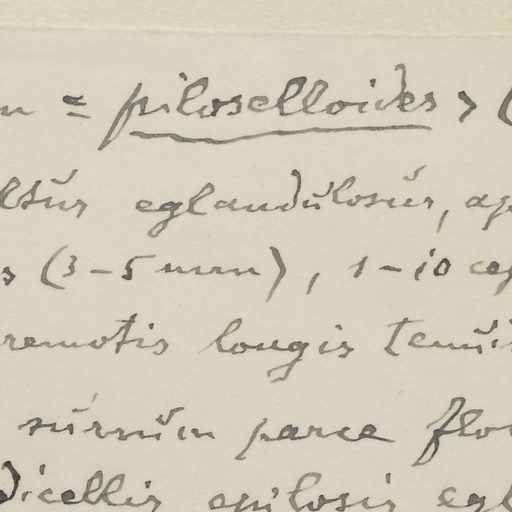 = piloselloides > (
eglandŭlosŭs, ap
(3-5 mm), 1-10 cep
remotis longis tenŭi
sŭrsŭm parce flo
dicellis epilosis egl